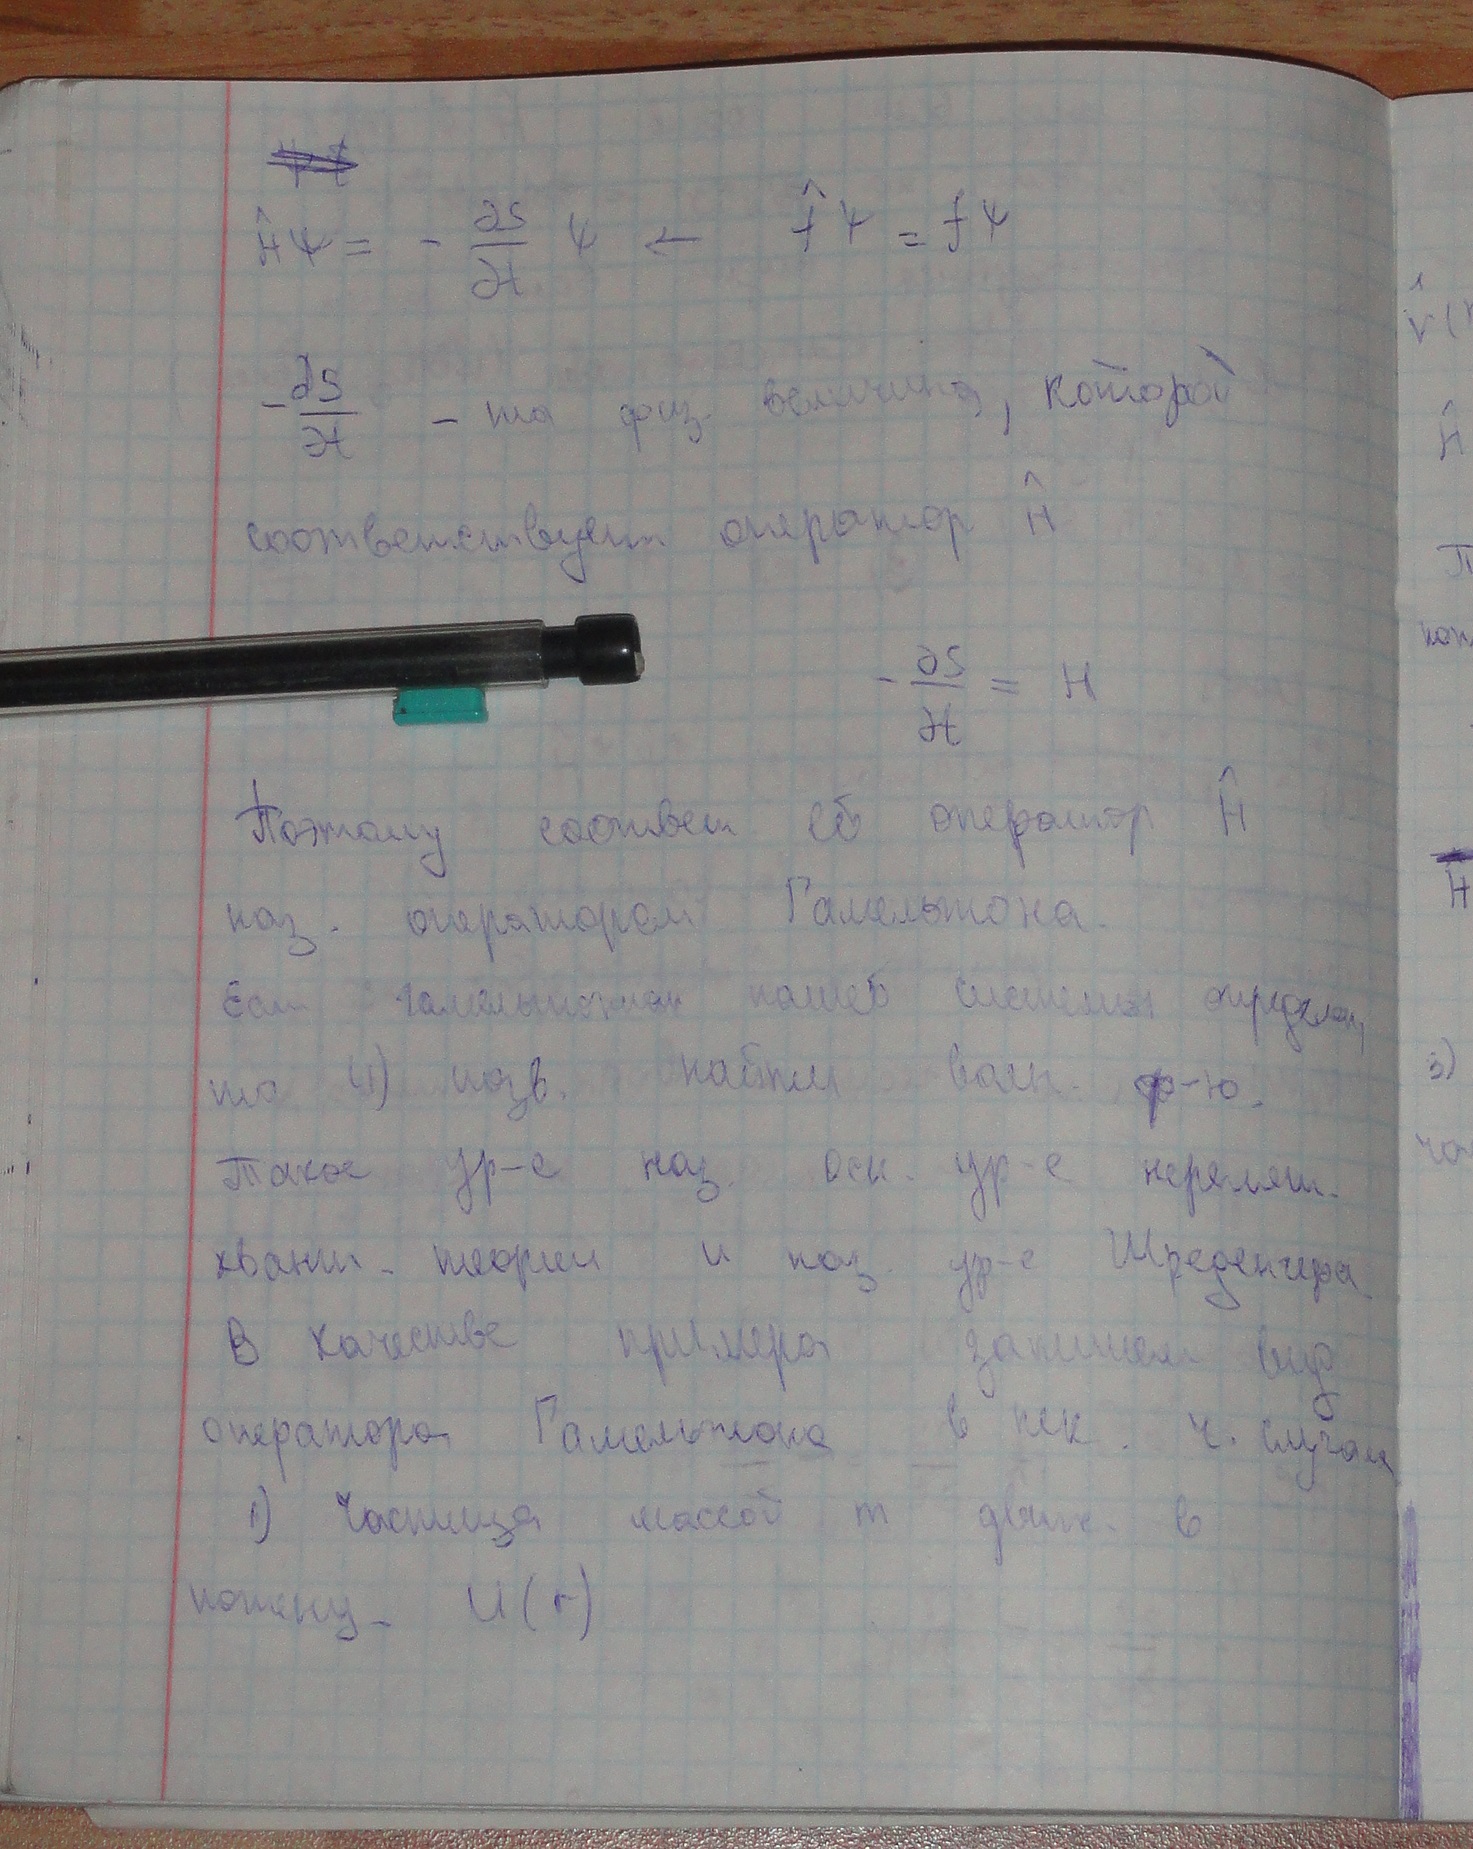 ĤΨ = - ∂S/∂t Ψ ← f̂Ψ = fΨ
- ∂S/∂t - та физ. величина, которой
соответствует оператор Ĥ
- ∂S/∂t = H
Поэтому соответ ей оператор Ĥ
наз. оператором Гамельтона.
Если гамельтониан нашей системы определен,
то 4) позв. найти волн. ф-ю.
Такое ур-е наз. осн. ур-е нерелят.
квант. теории и наз. ур-е Шреденгера
В качестве примера запишем вид
оператора Гамельтона в нек. ч. случаях
1) Частица массой m движ. в
потенц. U(r)
Ĥ
3)